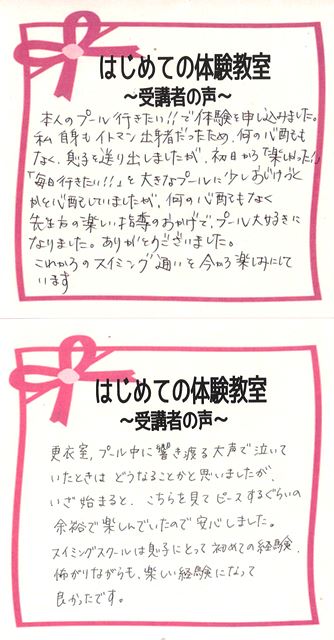 はじめての体験教室
～受講者の声～
本人のプール行きたい!!で体験を申し込みました。
私自身もイトマン出身者だったため、何の心配も
なく、息子を送り出しましたが、初日から「楽しかった!!」
「毎日行きたい!!」と大きなプールに少しおじけづく
かなと心配していましたが、何の心配もなく
先生方の楽しい指導のおかげで、プール大好きに
なりました。ありがとうございました。
これからのスイミング通いを今から楽しみにして
います
はじめての体験教室
～受講者の声～
更衣室、プール中に響き渡る大声で泣いて
いたときはどうなることかと思いましたが、
いざ始まると、こちらを見てピースするぐらいの
余裕で楽しんでいたので安心しました。
スイミングスクールは息子にとって初めての経験、
怖がりながらも、楽しい経験になって
良かったです。